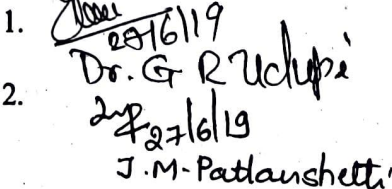 1.
29/6/19
Dr. G R Udupi
2.
27/6/19
J.M-Patlanshetti